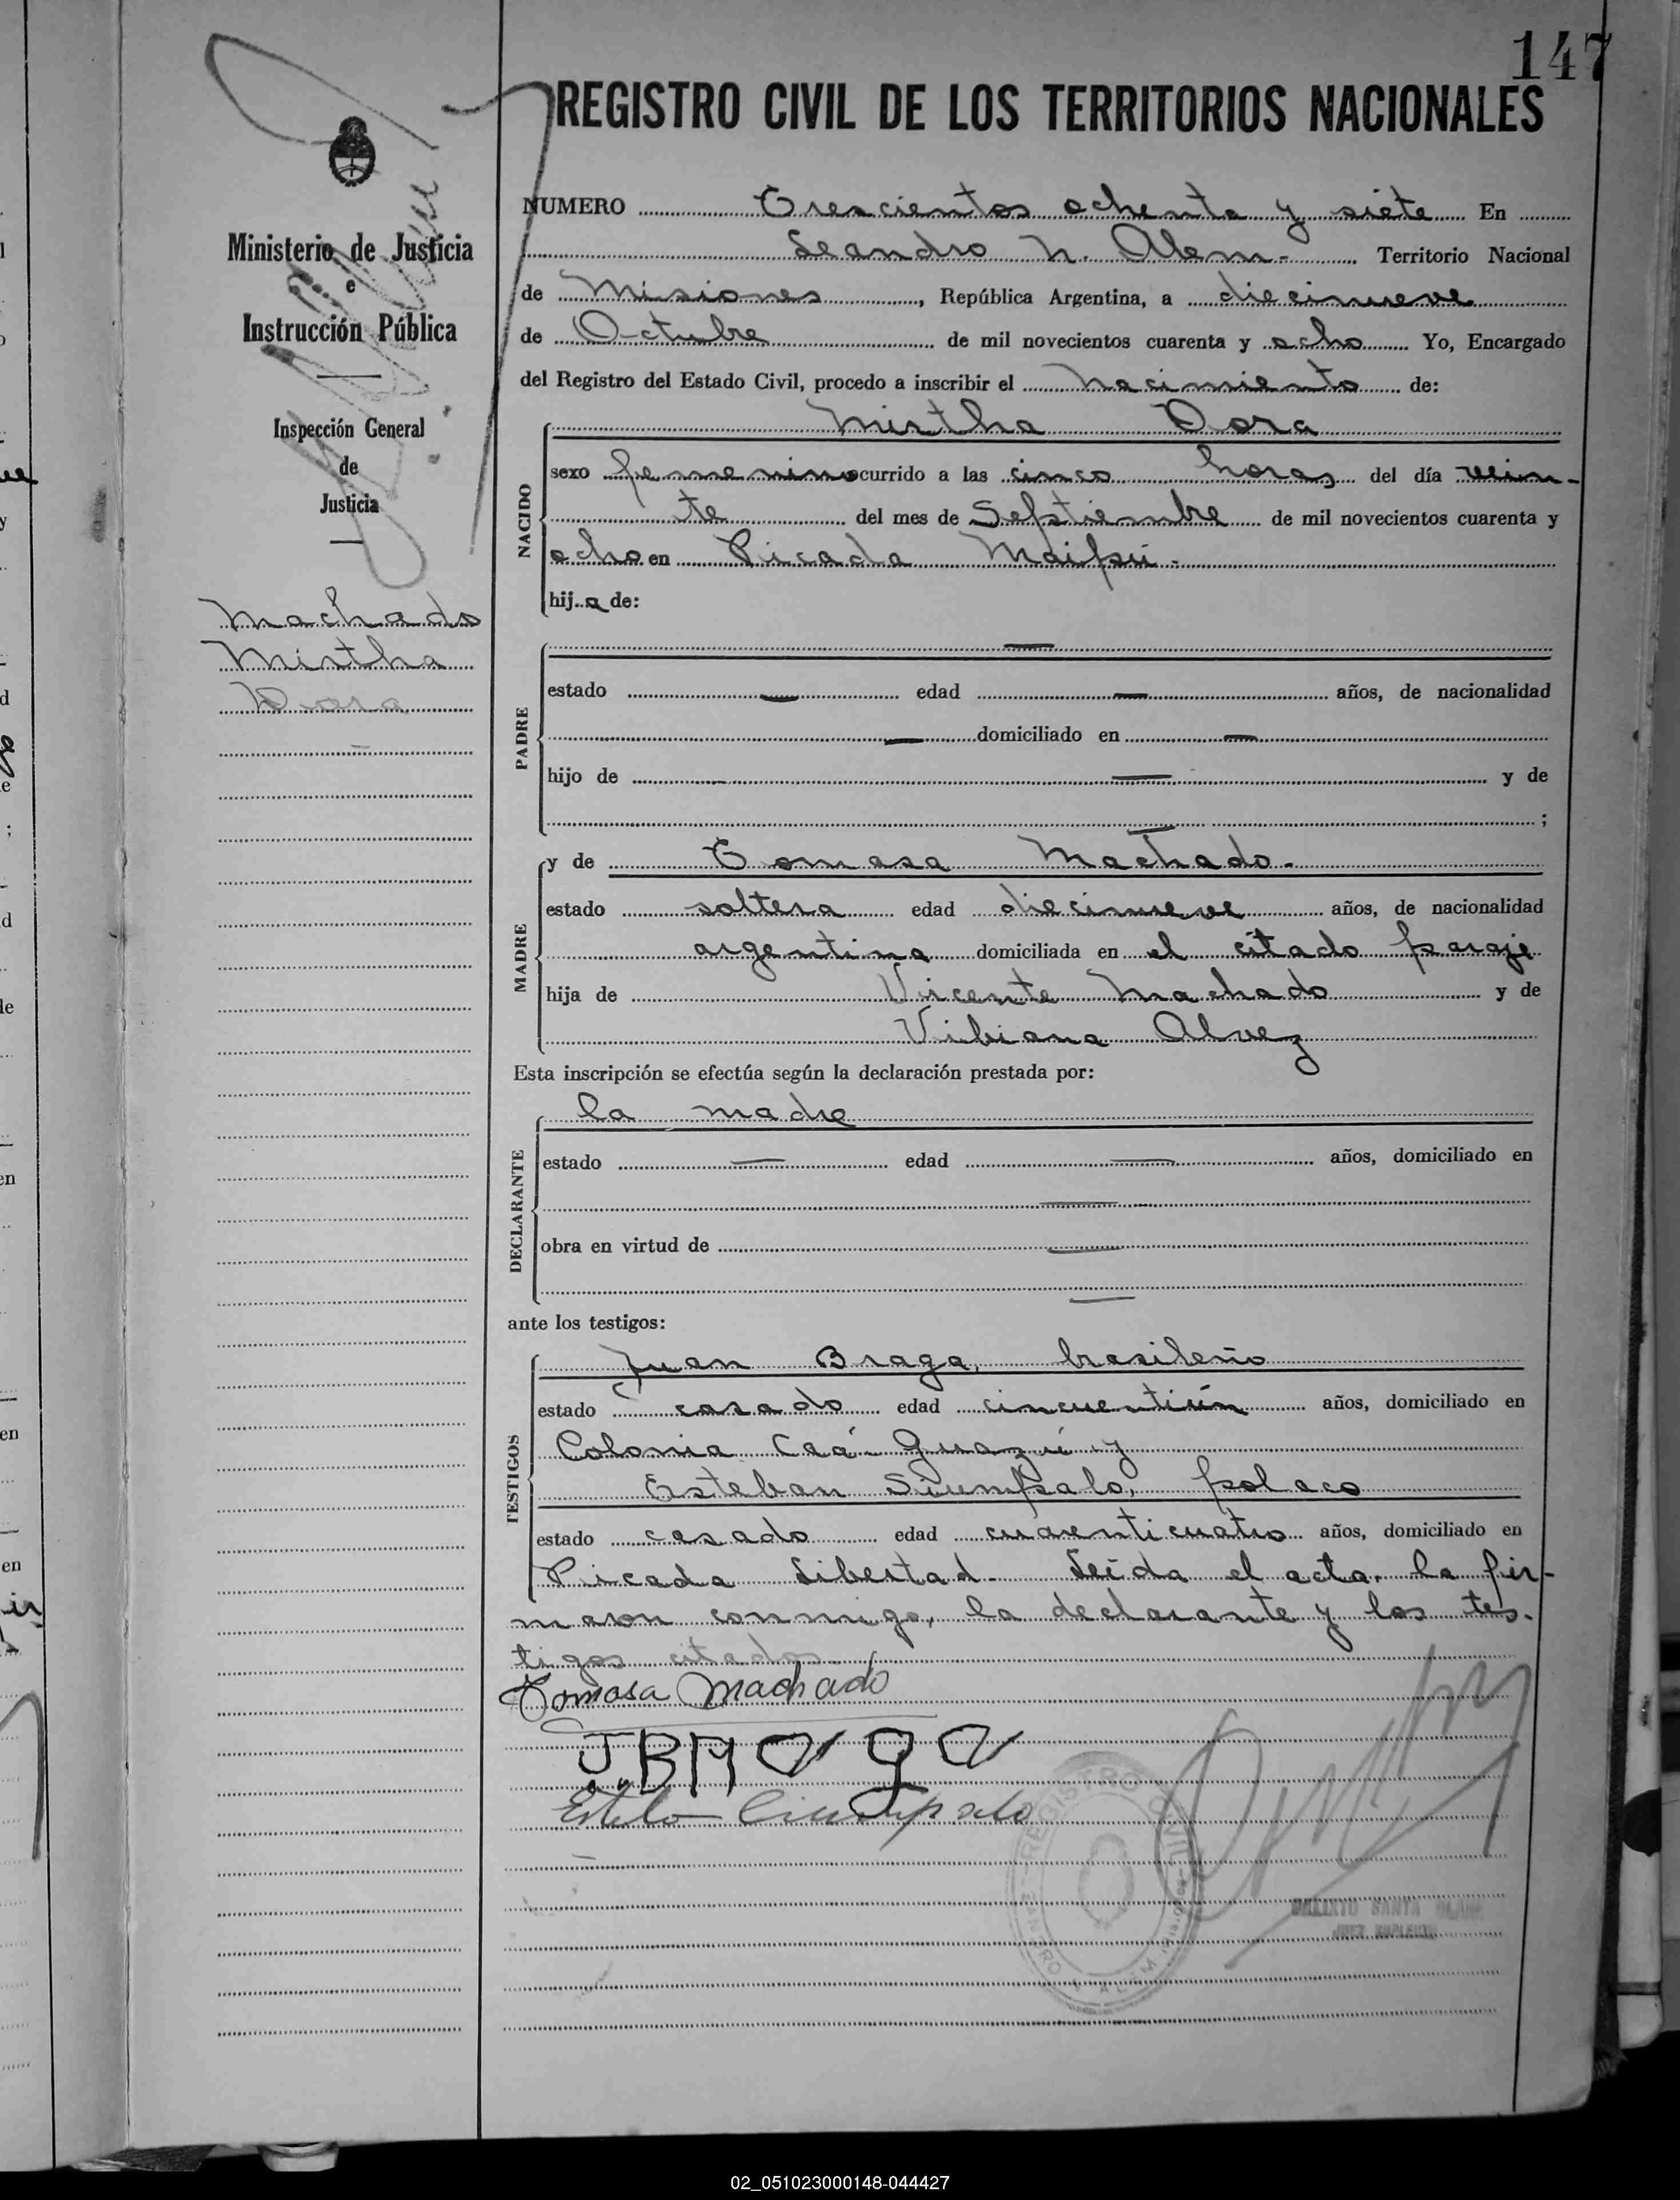 147
REGISTRO CIVIL DE LOS TERRITORIOS NACIONALES
Ministerio de Justicia
e
Instrucción Pública
Inspección General
de
Justicia
Machado
Mirtha
Dora
NUMERO Trescientos ochenta y siete En
Leandro N. Alem.- Territorio Nacional
de Misiones, República Argentina, a diecinueve
de Octubre de mil novecientos cuarenta y ocho Yo, Encargado
del Registro del Estado Civil, procedo a inscribir el nacimiento de:
NACIDO
Mirtha Dora
sexo femenino ocurrido a las cinco horas del día vein-
te del mes de Septiembre de mil novecientos cuarenta y
ocho en Picada Maipú.-
hija de:
PADRE
—
estado — edad — años, de nacionalidad
— domiciliado en —
hijo de — y de
— ;
MADRE
y de Tomasa Machado.-
estado soltera edad diecinueve años, de nacionalidad
argentina domiciliada en el citado paraje
hija de Vicente Machado y de
Vibiana Alvez
Esta inscripción se efectúa según la declaración prestada por:
DECLARANTE
la madre
estado — edad — años, domiciliado en
—
obra en virtud de —
—
ante los testigos:
TESTIGOS
Juan Braga, brasileño
estado casado edad cincuentiún años, domiciliado en
Colonia Caá-Guazú y
Esteban Siumpalo, polaco
estado casado edad cuarenticuatro años, domiciliado en
Picada Libertad.- Leída el acta, la fir-
maron conmigo, la declarante y los tes-
tigos citados.-
Tomasa Machado
JBraga
REGISTRO CIVIL
02_051023000148-044427